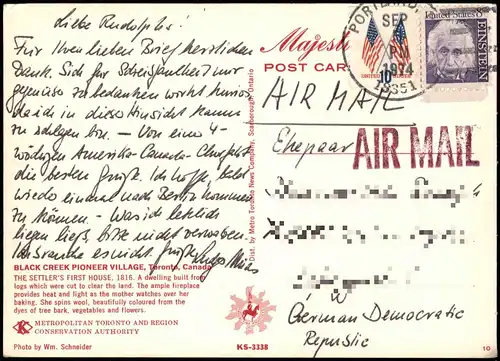 Liebe Rudolphs!
Für Ihren lieben Brief herzlichen
Dank. Sich für
zu bedanken wirkt kurios
da ich in dieser Hinsicht kaum
zu schlagen bin. — Von einer 4-
wöchigen Amerika-Canada-
die besten Grüße. Ich hoffe, bald
wieder einmal nach Berlin kommen
zu können. — Was ich letztlich
liegen ließ, bitte nicht verwahren,
ich brauche es nicht. Grüße
BLACK CREEK PIONEER VILLAGE, Toronto, Canada
THE SETTLER'S FIRST HOUSE, 1816. A dwelling built from
logs which were cut to clear the land. The ample fireplace
provides heat and light as the mother watches over her
baking. She spins wool, beautifully coloured from the
dyes of tree bark, vegetables and flowers.
METROPOLITAN TORONTO AND REGION
CONSERVATION AUTHORITY
Photo by Wm. Schneider
KS-3338
Dist. by Metro Toronto News Company, Scarborough Ontario
Majesti
POST CAR
PORTLAND
SEP
PM
1974
10¢
United States 8c
EINSTEIN
AIR MAIL
Ehepaar
AIR MAIL
German Democratic
Republic
10